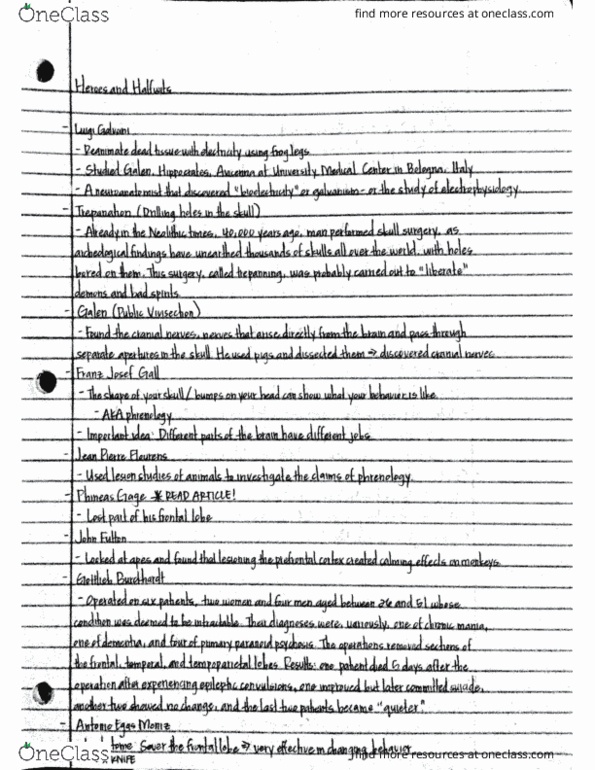 OneClass
find more resources at oneclass.com
Heroes and Halfwits
- Luigi Galvani
- Reanimate dead tissue with electricity using frog legs
- Studied Galen, Hippocrates, Avicenna at University Medical Center in Bologna, Italy
- A neuroanatomist that discovered "bioelectricity" or galvanism - or the study of electrophysiology
- Trepanation (Drilling holes in the skull)
- Already in the Neolithic times, 40,000 years ago, man performed skull surgery, as
archeological findings have unearthed thousands of skulls all over the world, with holes
bored on them. This surgery, called trepanning, was probably carried out to "liberate"
demons and bad spirits
- Galen (Public Vivisection)
- Found the cranial nerves, nerves that arise directly from the brain and pass through
separate apertures in the skull. He used pigs and dissected them → discovered cranial nerves
- Franz Josef Gall
- The shape of your skull / bumps on your head can show what your behavior is like
- AKA phrenology
- Important idea: Different parts of the brain have different jobs
- Jean Pierre Flourens
- Used lesion studies of animals to investigate the claims of phrenology
- Phineas Gage * READ ARTICLE!
- Lost part of his frontal lobe
- John Fulton
- Looked at apes and found that lesioning the prefrontal cortex created calming effects on monkeys
- Gottlieb Burckhardt
- Operated on six patients, two women and four men aged between 26 and 51 whose
condition was deemed to be intractable. Their diagnoses were, variously, one of chronic mania,
one of dementia, and four of primary paranoid psychosis. The operations removed sections of
the frontal, temporal, and temporoparietal lobes. Results: one patient died 5 days after the
operation after experiencing epileptic convulsions, one improved but later committed suicide,
another two showed no change, and the last two patients became "quieter."
- Antonio Egas Moniz
tome Sever the frontal lobe → very effective in changing behavior
KNIFE
OneClass
find more resources at oneclass.com